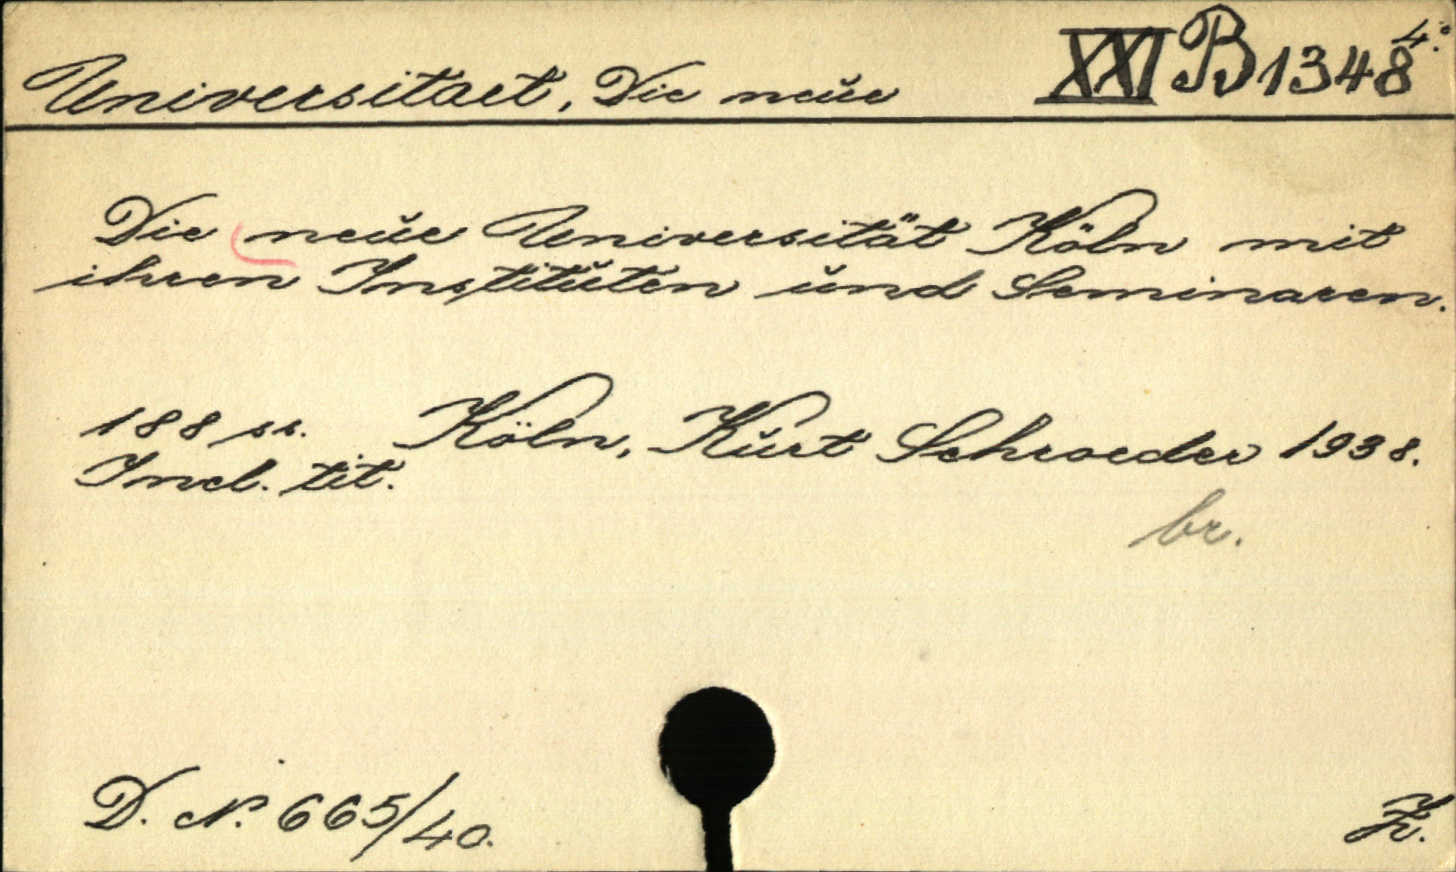 Universitaet, Die neue XXI B 1348 4°.
Die neue Universität Köln mit
ihren Instituten und Seminaren.
188 ss. Köln, Kurt Schroeder 1938.
Incl. tit.
br.
D. N. 665/40.